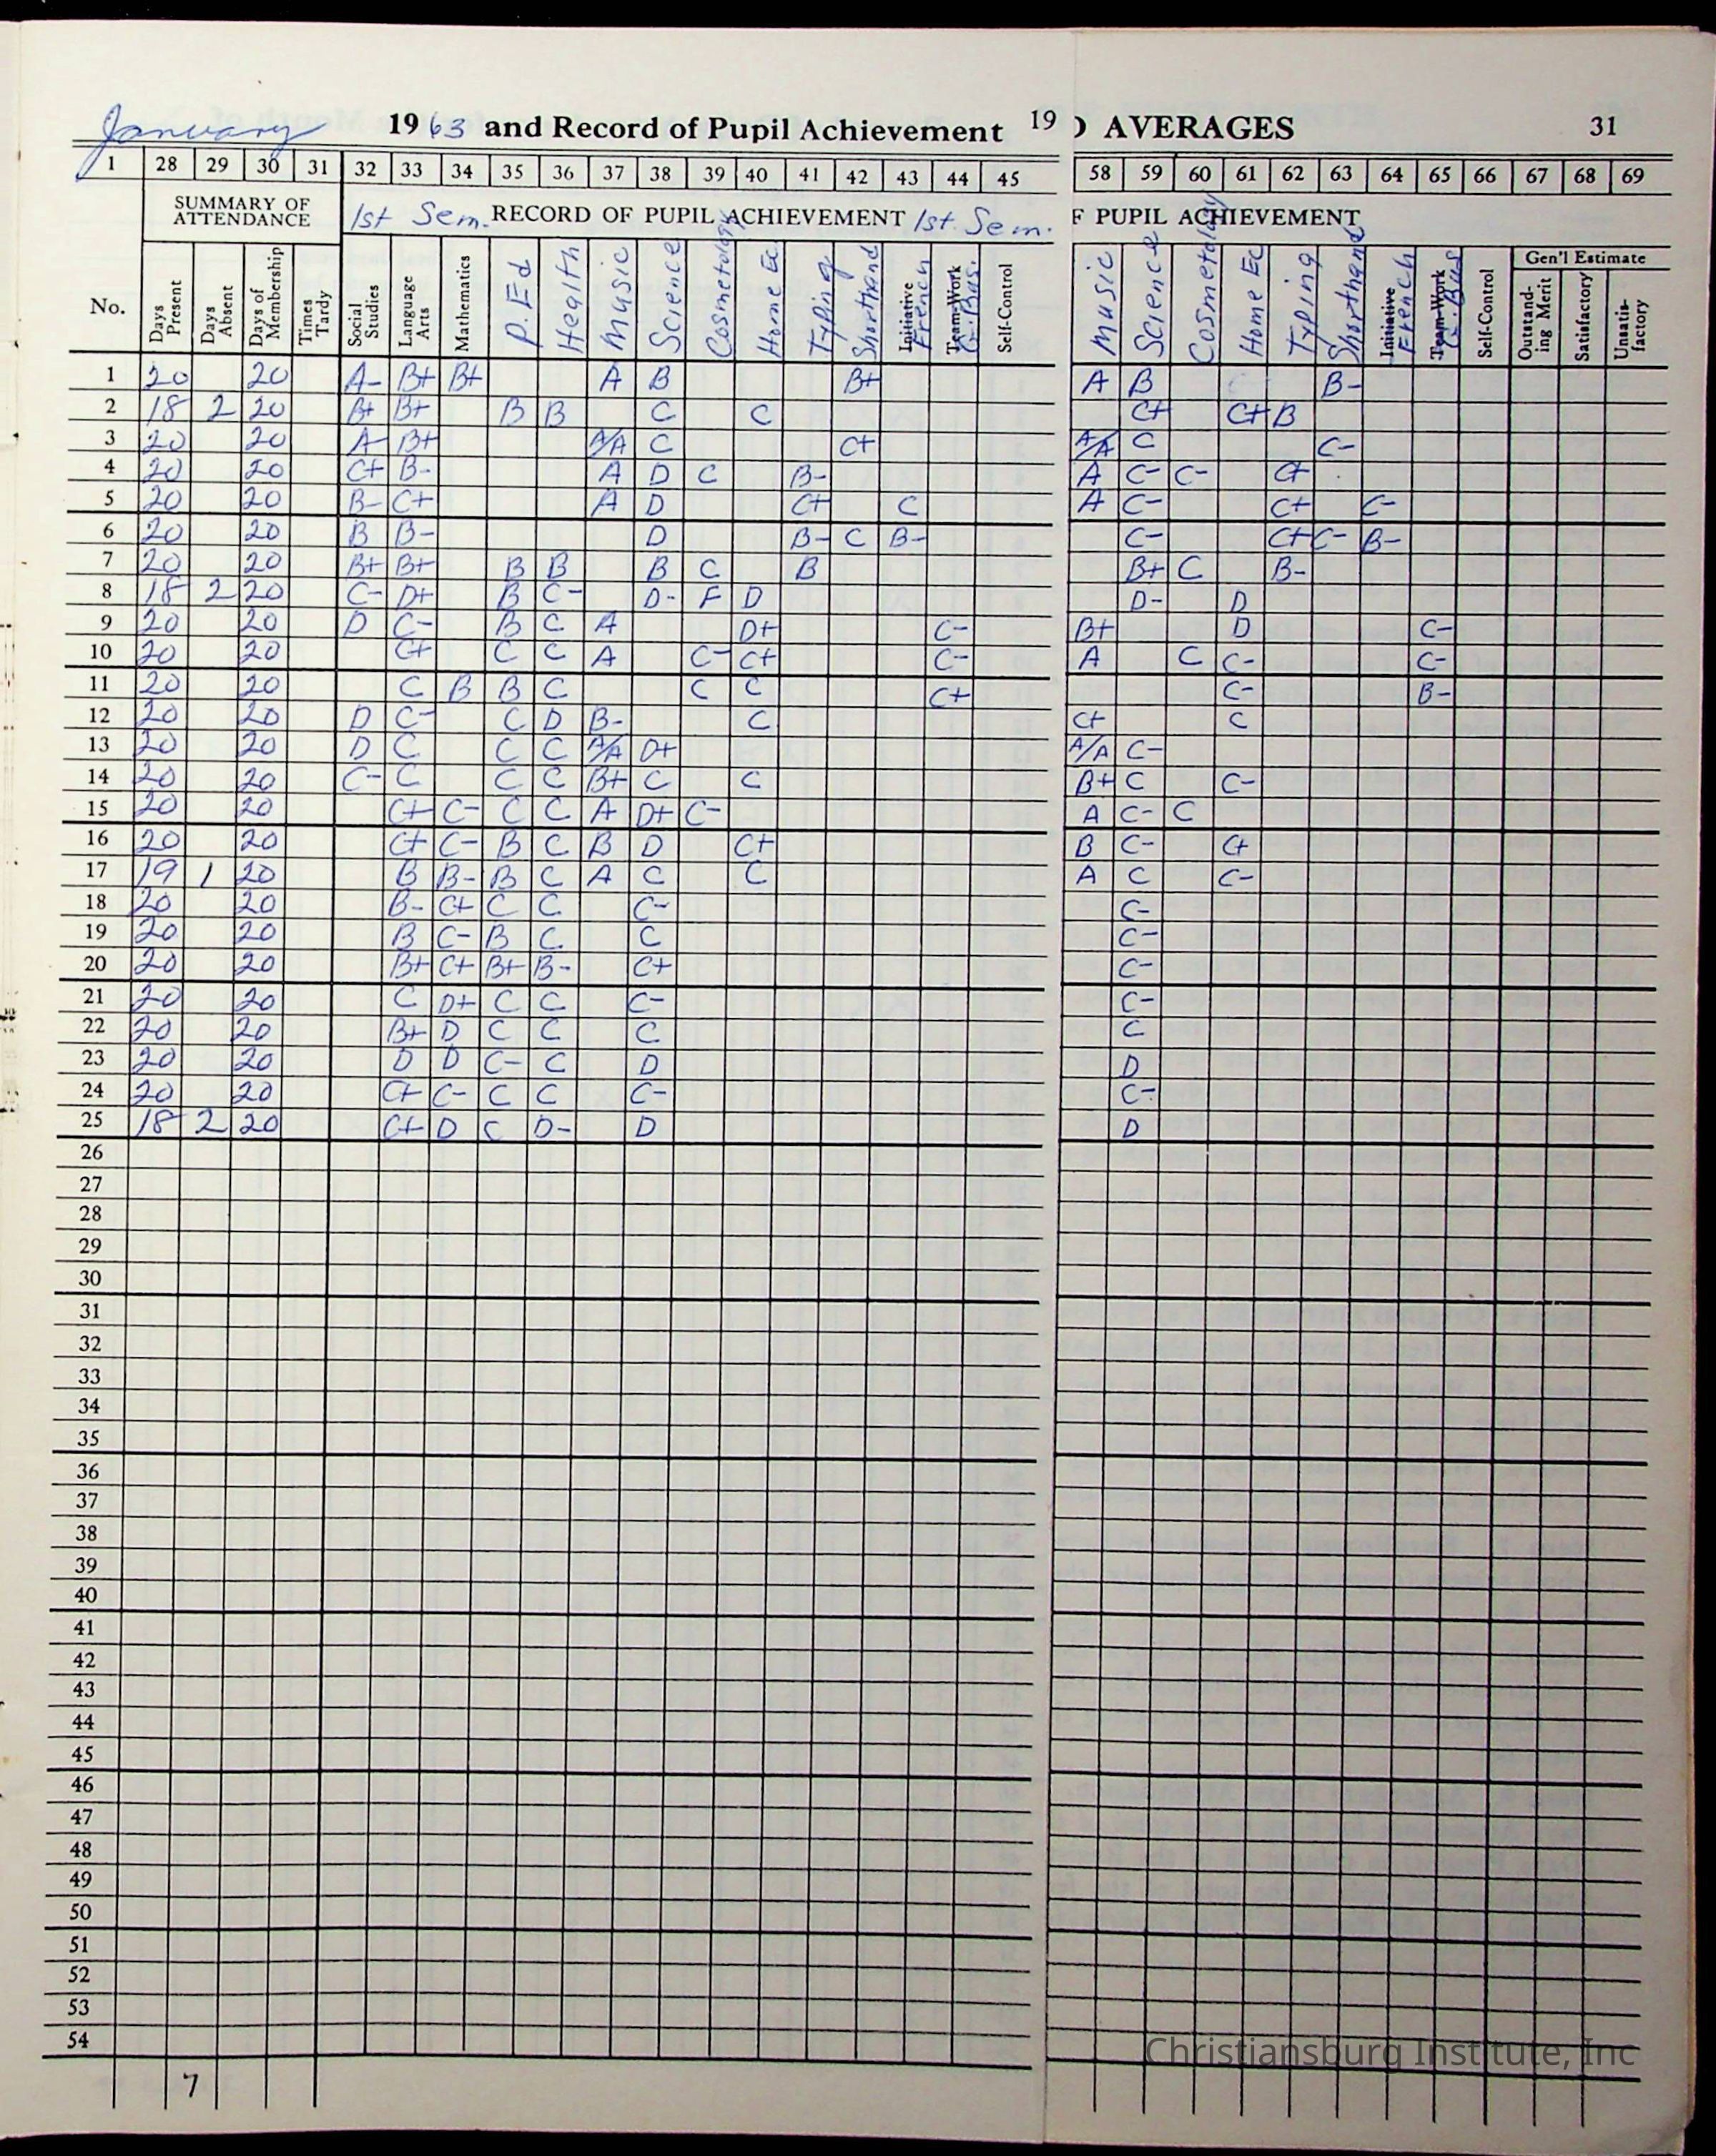 January 1963 and Record of Pupil Achievement 19 D AVERAGES 31
1 28 29 30 31 32 33 34 35 36 37 38 39 40 41 42 43 44 45 58 59 60 61 62 63 64 65 66 67 68 69
SUMMARY OF ATTENDANCE 1st Sem. RECORD OF PUPIL ACHIEVEMENT 1st Sem. F PUPIL ACHIEVEMENT
Gen'l Estimate
No. Days Present Days Absent Days of Membership Times Tardy Social Studies Language Arts Mathematics P. Ed Health Music Science Cosmetology Home Ec. Typing Shorthand Initiative French Team-Work G. Bus. Self-Control Music Science Cosmetology Home Ec Typing Shorthand Initiative French Team-Work G. Bus Self-Control Outstanding Merit Satisfactory Unsatisfactory
1 20 20 A- B+ B+ A B B+ A B B-
2 18 2 20 B+ B+ B B C C C+ C+ B
3 20 20 A- B+ A/A C C+ A/A C C-
4 20 20 C+ B- A D C B- A C- C- C+
5 20 20 B- C+ A D C+ C A C- C+ C-
6 20 20 B B- D B- C B- C- C+ C- B-
7 20 20 B+ B+ B B B C B B+ C B-
8 18 2 20 C- D+ B C- D- F D D- D
9 20 20 D C- B C A D+ C- B+ D C-
10 20 20 C+ C C A C- C+ C- A C C- C-
11 20 20 C B B C C C C+ C- B-
12 20 20 D C- C D B- C C+ C
13 20 20 D C C C A/A D+ A/A C-
14 20 20 C- C C C B+ C C B+ C C-
15 20 20 C+ C- C C A D+ C- A C- C
16 20 20 C+ C- B C B D C+ B C- C+
17 19 1 20 B B- B C A C C A C C-
18 20 20 B- C+ C C C- C-
19 20 20 B C- B C C C-
20 20 20 B+ C+ B+ B- C+ C-
21 20 20 C D+ C C C- C-
22 20 20 B+ D C C C C
23 20 20 D D C- C D D
24 20 20 C+ C- C C C- C-
25 18 2 20 C+ D C D- D D
26
27
28
29
30
31
32
33
34
35
36
37
38
39
40
41
42
43
44
45
46
47
48
49
50
51
52
53
54
7
Christiansburg Institute, Inc